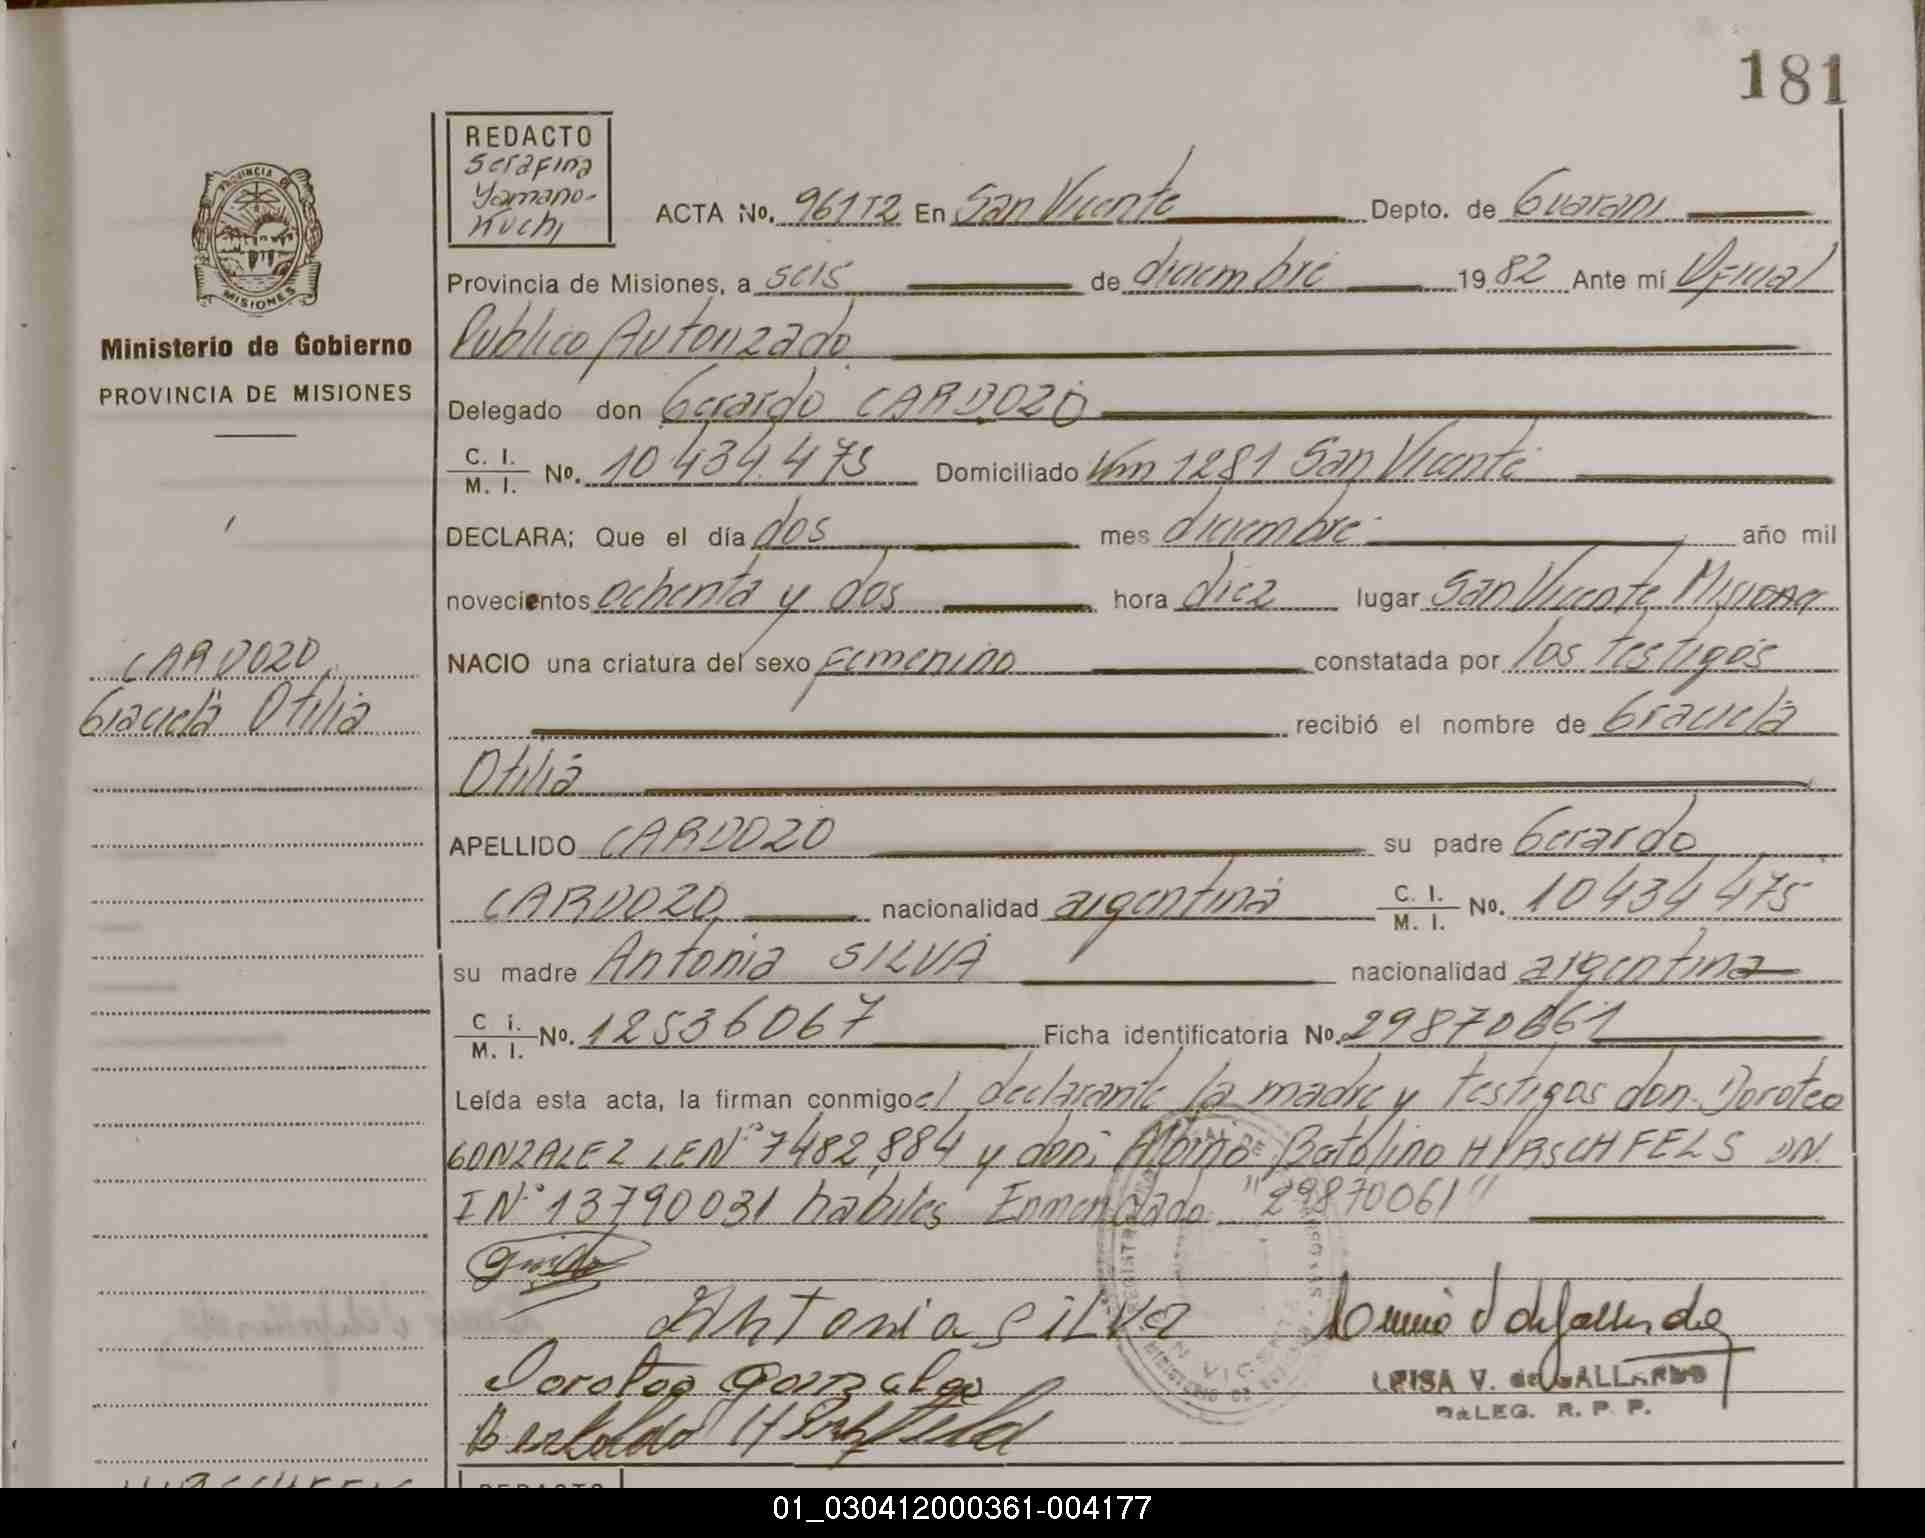 181
REDACTO
Serafina
Yamano-
Kuchi
PROVINCIA DE
MISIONES
Ministerio de Gobierno
PROVINCIA DE MISIONES
ACTA No. 961T2 En San Vicente Depto. de Guarani
Provincia de Misiones, a seis de diciembre 1982 Ante mí Oficial
Publico Autorizado
Delegado don Gerardo CARDOZO
C. I. / M. I. No. 10.434.475 Domiciliado Km 1281 San Vicente
DECLARA; Que el día dos mes diciembre año mil
novecientos ochenta y dos hora diez lugar San Vicente Misiones
CARDOZO
NACIO una criatura del sexo femenino constatada por los testigos
Graciela Otilia
recibió el nombre de Graciela
Otilia
APELLIDO CARDOZO su padre Gerardo
CARDOZO nacionalidad argentina C. I. / M. I. No. 10434475
su madre Antonia SILVA nacionalidad argentina
C i. / M. I. No. 12536067 Ficha identificatoria No. 29870061
Leída esta acta, la firman conmigo el declarante la madre y testigos don Doroteo
GONZALEZ LEN° 7482,884 y don Albino Batolino HIRSCHFELS DN
IN° 13790031 habiles Enmendado "29870061"
Antonia SILVA
Doroteo Gonzalez
LUISA V. de GALLARDO
DELEG. R. P. P.
REDACTO
01_030412000361-004177